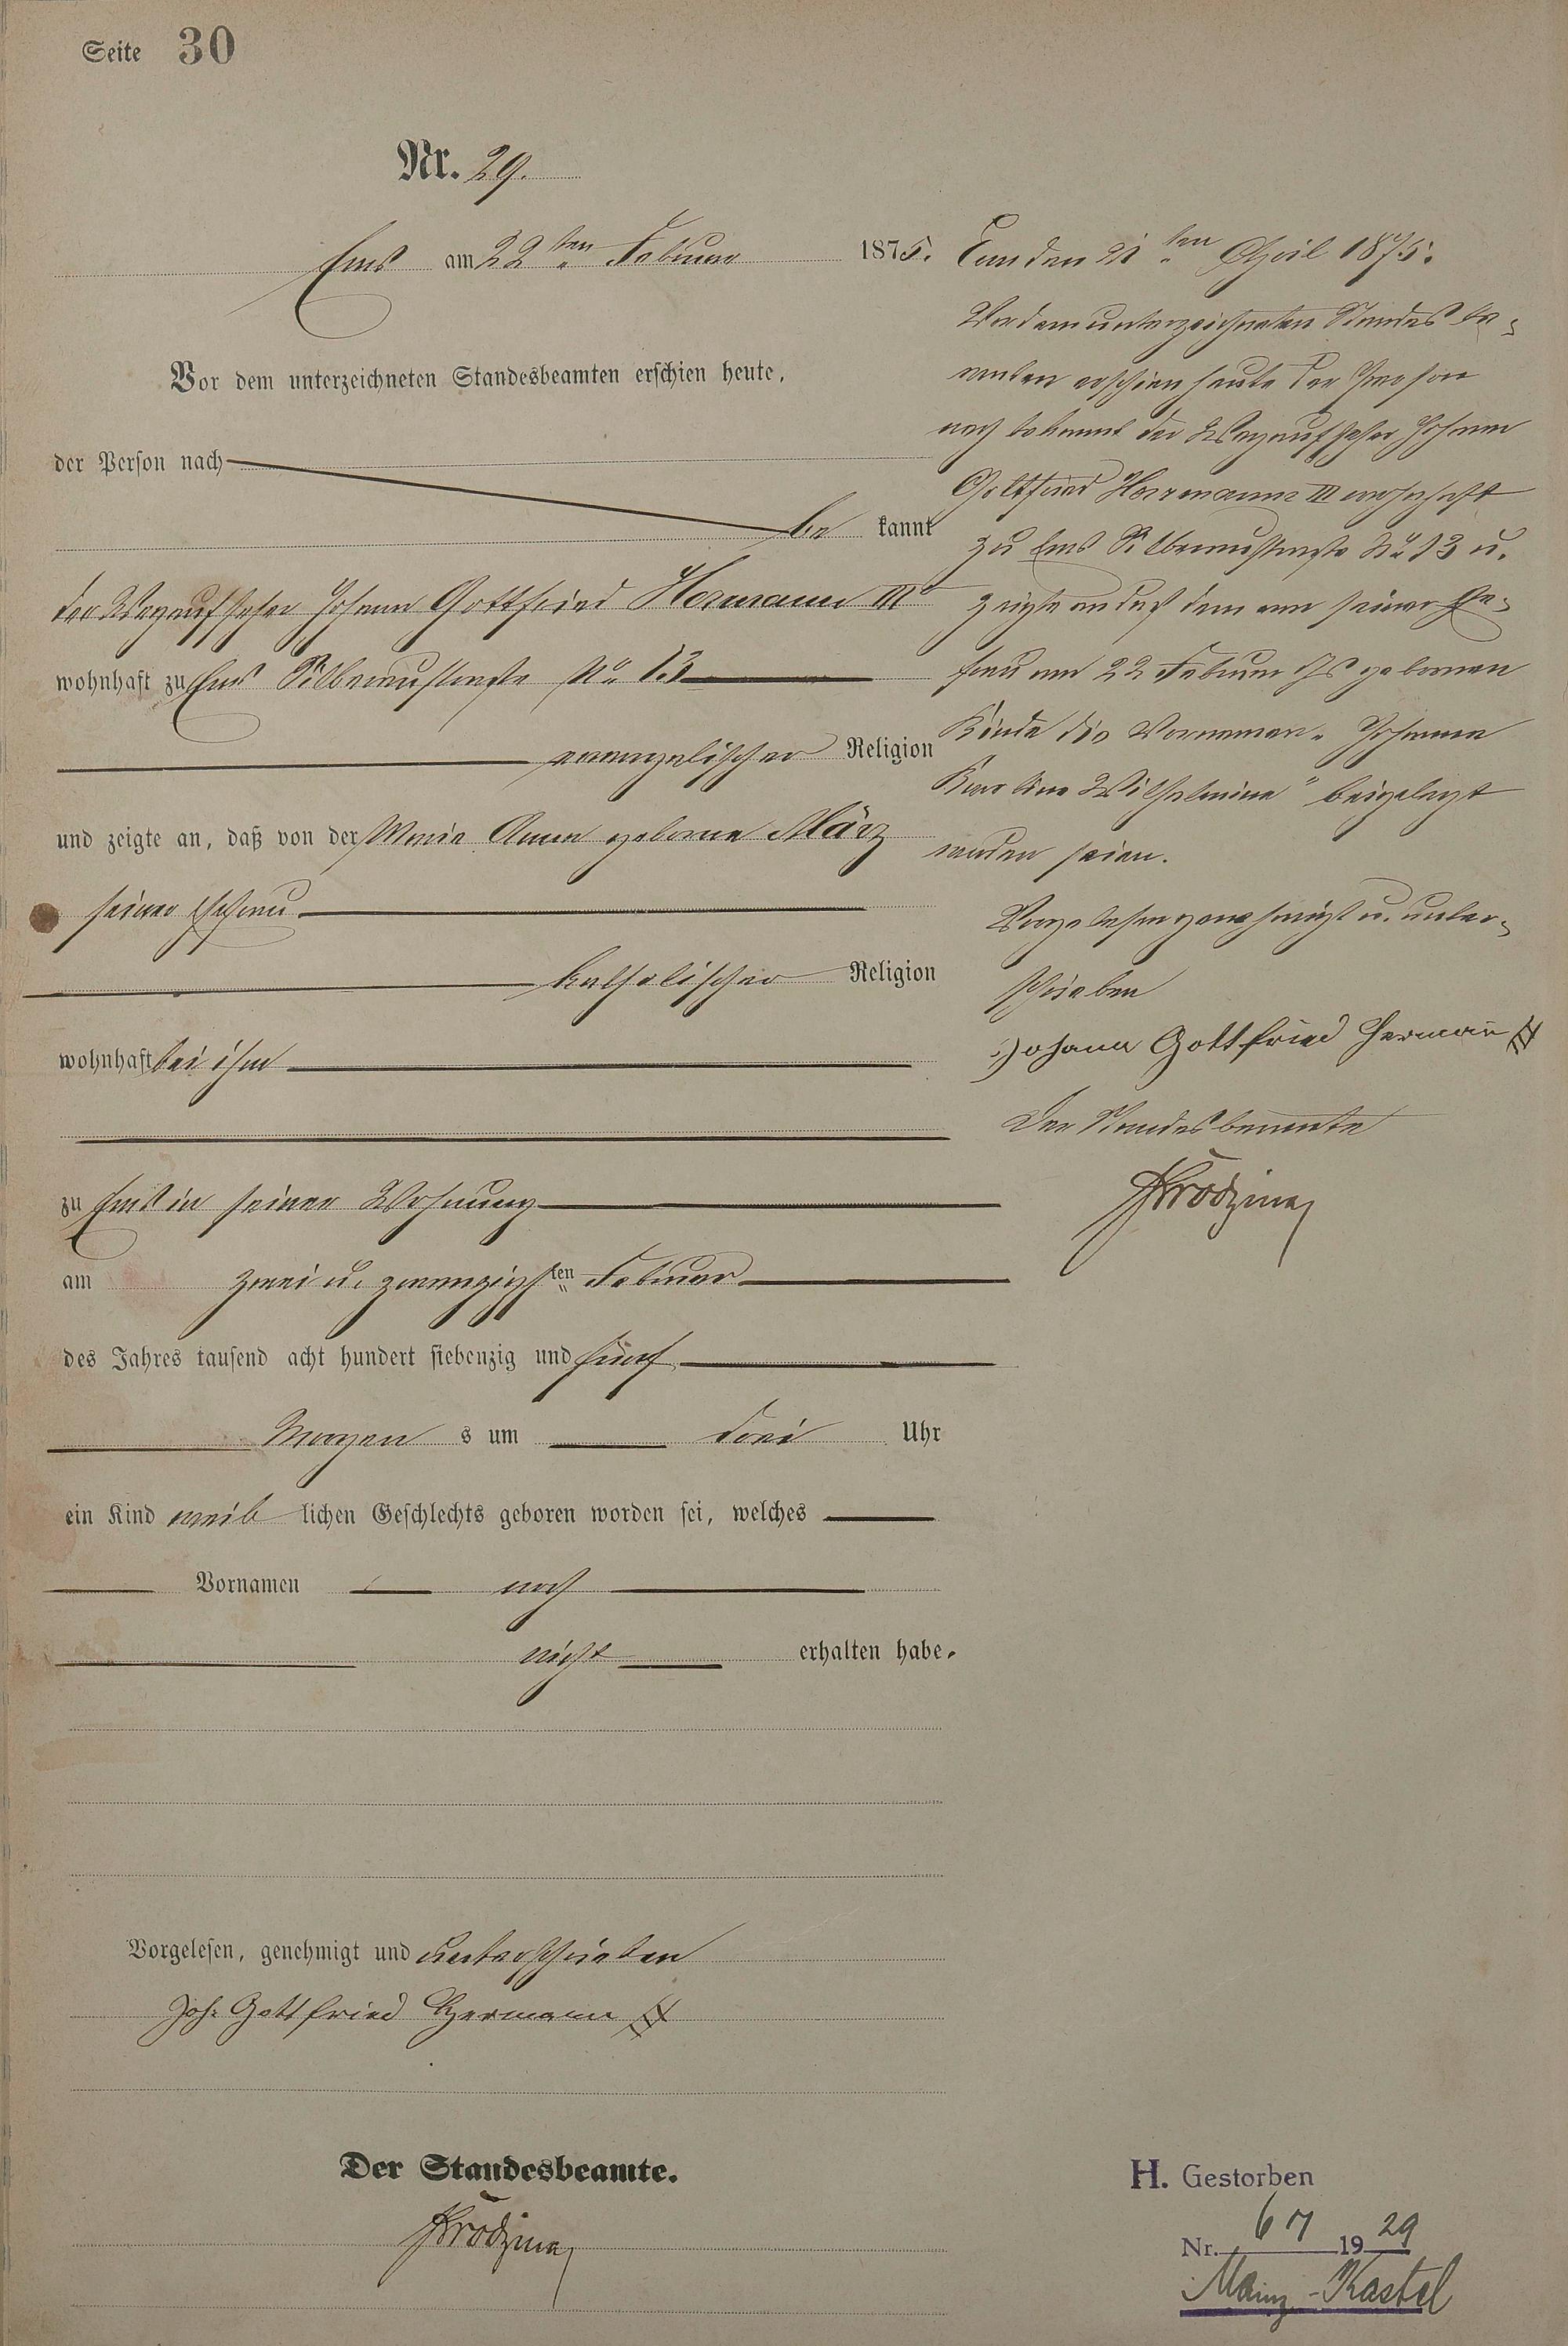 Seite 30
Nr. 29.
Ems am 22ten Februar 1875.
Vor dem unterzeichneten Standesbeamten erschien heute,
der Person nach
be kannt
der Wegaufseher Johann Gottfried Hermann III
wohnhaft zu Ems Silberaustraße No 13
evangelischer Religion
und zeigte an, daß von der Marie Anna geborene März
seiner Ehefrau
katholischer Religion
wohnhaft bei ihm
zu Ems in seiner Wohnung
am zwei u. zwanzigsten Februar
des Jahres tausend acht hundert siebenzig und fünf
Morgen s um drei Uhr
ein Kind weib lichen Geschlechts geboren worden sei, welches
Vornamen noch
nicht erhalten habe.
Vorgelesen, genehmigt und unterschrieben
Joh. Gottfried Hermann
Der Standesbeamte.
Ems den 21ten April 1875.
Vor dem unterzeichneten Standesbe-
amten erschien heute der Person
nach bekannt der Wegaufseher Johann
Gottfried Herrmann III wohnhaft
zu Ems Silberaustraße No 13 u.
zeigte an daß dem von seiner Ehe-
frau am 22 Februar Js geborenen
Kinde die Vornamen „Johanna
Karoline Wilhelmine" beigelegt
worden seien.
Vorgelesen genehmigt u. unter-
schrieben
Johann Gottfried Herman
Der Standesbeamte
H. Gestorben
Nr. 67 1929
Mainz-Kastel